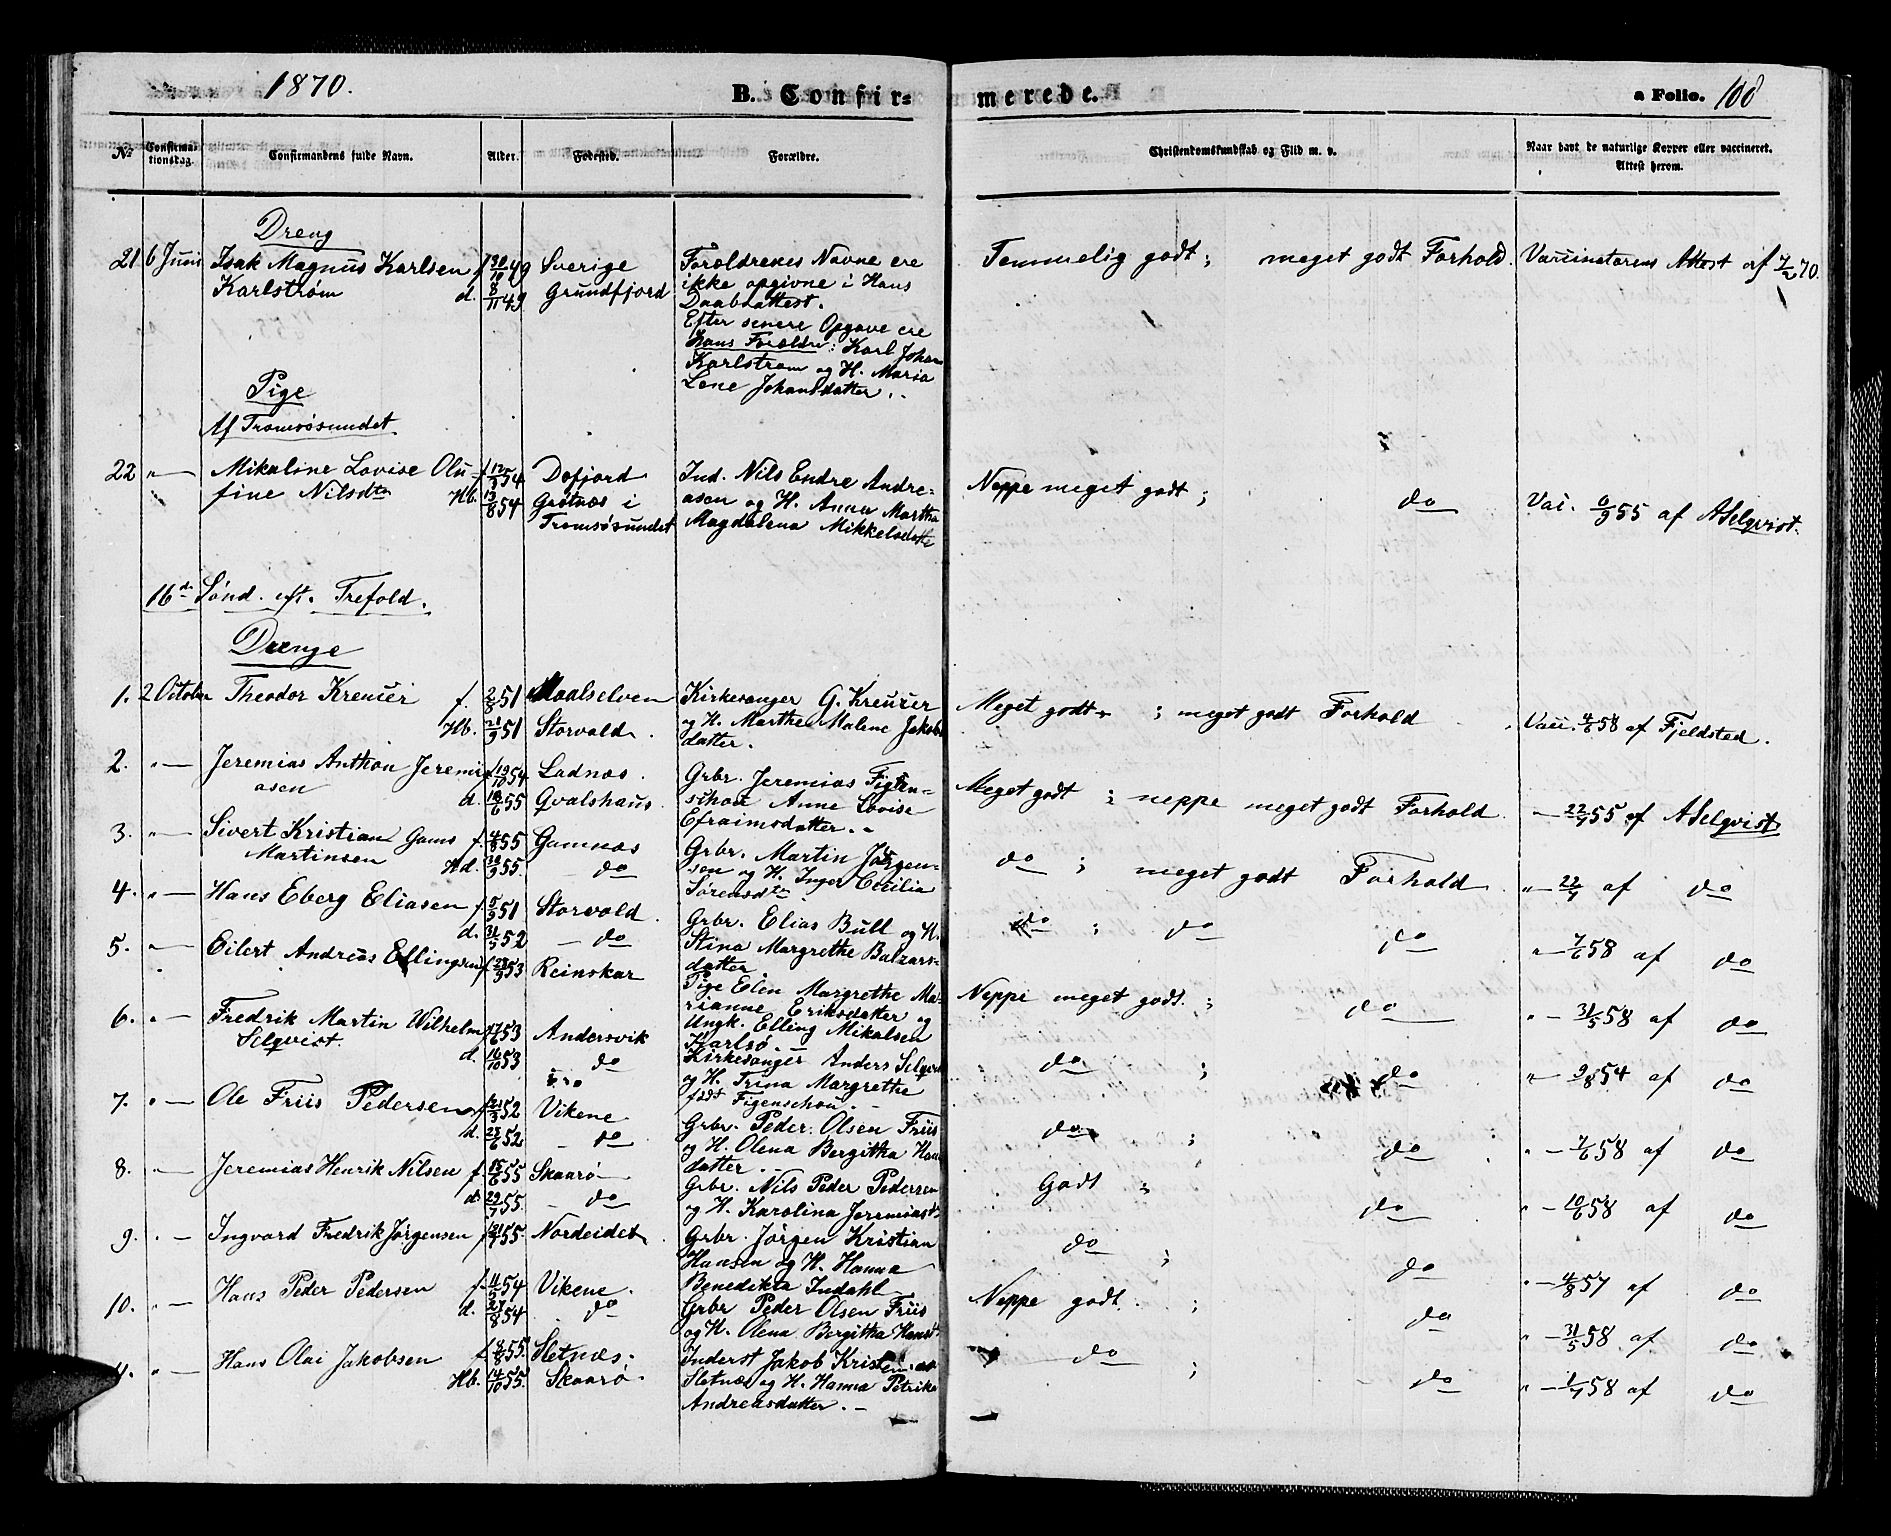 1870.
B. Confir-
merede.
a Folio. 108
No Confirmationsdag. Confirmandens fulde Navn. Alder. Fødested. Forældre. Christendomskundskab og Flid m. v. Naar havt de naturlige Kopper eller vaccineret. Attest herom.
Dreng
21 6 Juni Isak Magnus Karlsen f. 30/10 49 Sverige Forældrenes Navne ere Temmelig godt; meget godt Forhold. Vaccinatørens Attest af 7/2 70.
Karlstrøm d. 8/11 49 Grundfjord ikke opgivne i Hans
Daabsattest.
Efter senere Opgave ere
Hans Forældre: Karl Johan
Karlstrøm og H. Maria
Lene Johansdatter.
Pige
Af Tromsøsundet
22 " — Mikaline Lovise Olu- f. 12/3 54 Dofjord Ind. Nils Endre Andre- Neppe meget godt; do Vac. 6/9 55 af ASelqvist.
fine Nilsdtr Hb. 13/8 54 Grøtnæs i asen og H. Anna Martha
Tromsøsundet Magdalena Mikkelsdattr
16de Sønd. eft. Trefold.
Drenge
1. 2 October Theodor Kreutzer f. 2/8 51 Maalselven Kirkesanger G. Kreutzer Meget godt; meget godt Forhold Vacc. 4/6 58 af Fjeldsted.
Hb. 21/9 51 Storvold. og H. Marthe Malene Jakobs
datter.
2. " — Jeremias Anthon Jeremi- f. 19/10 54 Ladnæs. Grbr. Jeremias Figen- Meget godt; neppe meget godt Forhold. — 22/7 55 af ASelqvist
asen d. 18/6 55 Gvalshaus. schou Anne Lovise
Efraimsdatter.
3. " — Sivert Kristian Gams f. 4/8 55 Gamnæs Grbr. Martin Jørgen- do; meget godt Forhold " — 22/7 af do
Martinsen Hd. 30/9 55. — do sen og H. Inger Cecilia
Sørensdtr
4. " — Hans Eberg Eliasen f. 5/9 51 Storvold. Grbr. Elias Bull og H. do; do do " — 7/6 58 af do
d. 31/5 52 — do Stina Margrethe Balzars-
datter.
5. " — Eilert Andreas Ellingsen f. 23/9 53 Reinskar Pige Elen Margrethe Ma- Neppe meget godt; do " — 31/5 58 af do
rianne Eriksdatter og
Ungk. Elling Mikalsen
Karlsø.
6. " — Fredrik Martin Wilhelm f. 17/6 53 Andersvik Kirkesanger Anders Selqvist do; do " — 9/8 54 af do
Selqvist. d. 16/10 53 do og H. Trina Margrethe
født Figenschou.
7. " — Ole Friis Pedersen f. 23/3 52 Vikene Grbr. Peder Olsen Friis do; do " — 7/6 58 af do
d. 27/6 52 — do og H. Olena Bergitha Hans
datter.
8. " — Jeremias Henrik Nilsen f. 15/6 55 Skaarø Grbr. Nils Peder Pedersen Godt; do " — 10/6 58 af do
d. 29/7 55. — do og H. Karolina Jeremiasd.
9. " — Ingvard Fredrik Jørgensen f. 13/7 55. Nordeidet. Grbr. Jørgen Kristian do; do " — 4/8 57 af do
Hansen og H. Hanna
Benedikta Indahl
10. " — Hans Peder Pedersen f. 11/5 54 Vikene. Grbr Peder Olsen Friis Neppe godt.; do " — 31/5 58 af do
d. 27/8 54 do og H. Olena Bergitha Hansd.
11. " — Hans Olai Jakobsen f. 8/8 55. Sletnæs. Inderst Jakob Kristen do; do " — 1/7 58 af do
Hb. 14/10 55. Skaarø. Sletnæs og H. Hanna Petrike
Andreasdatter.